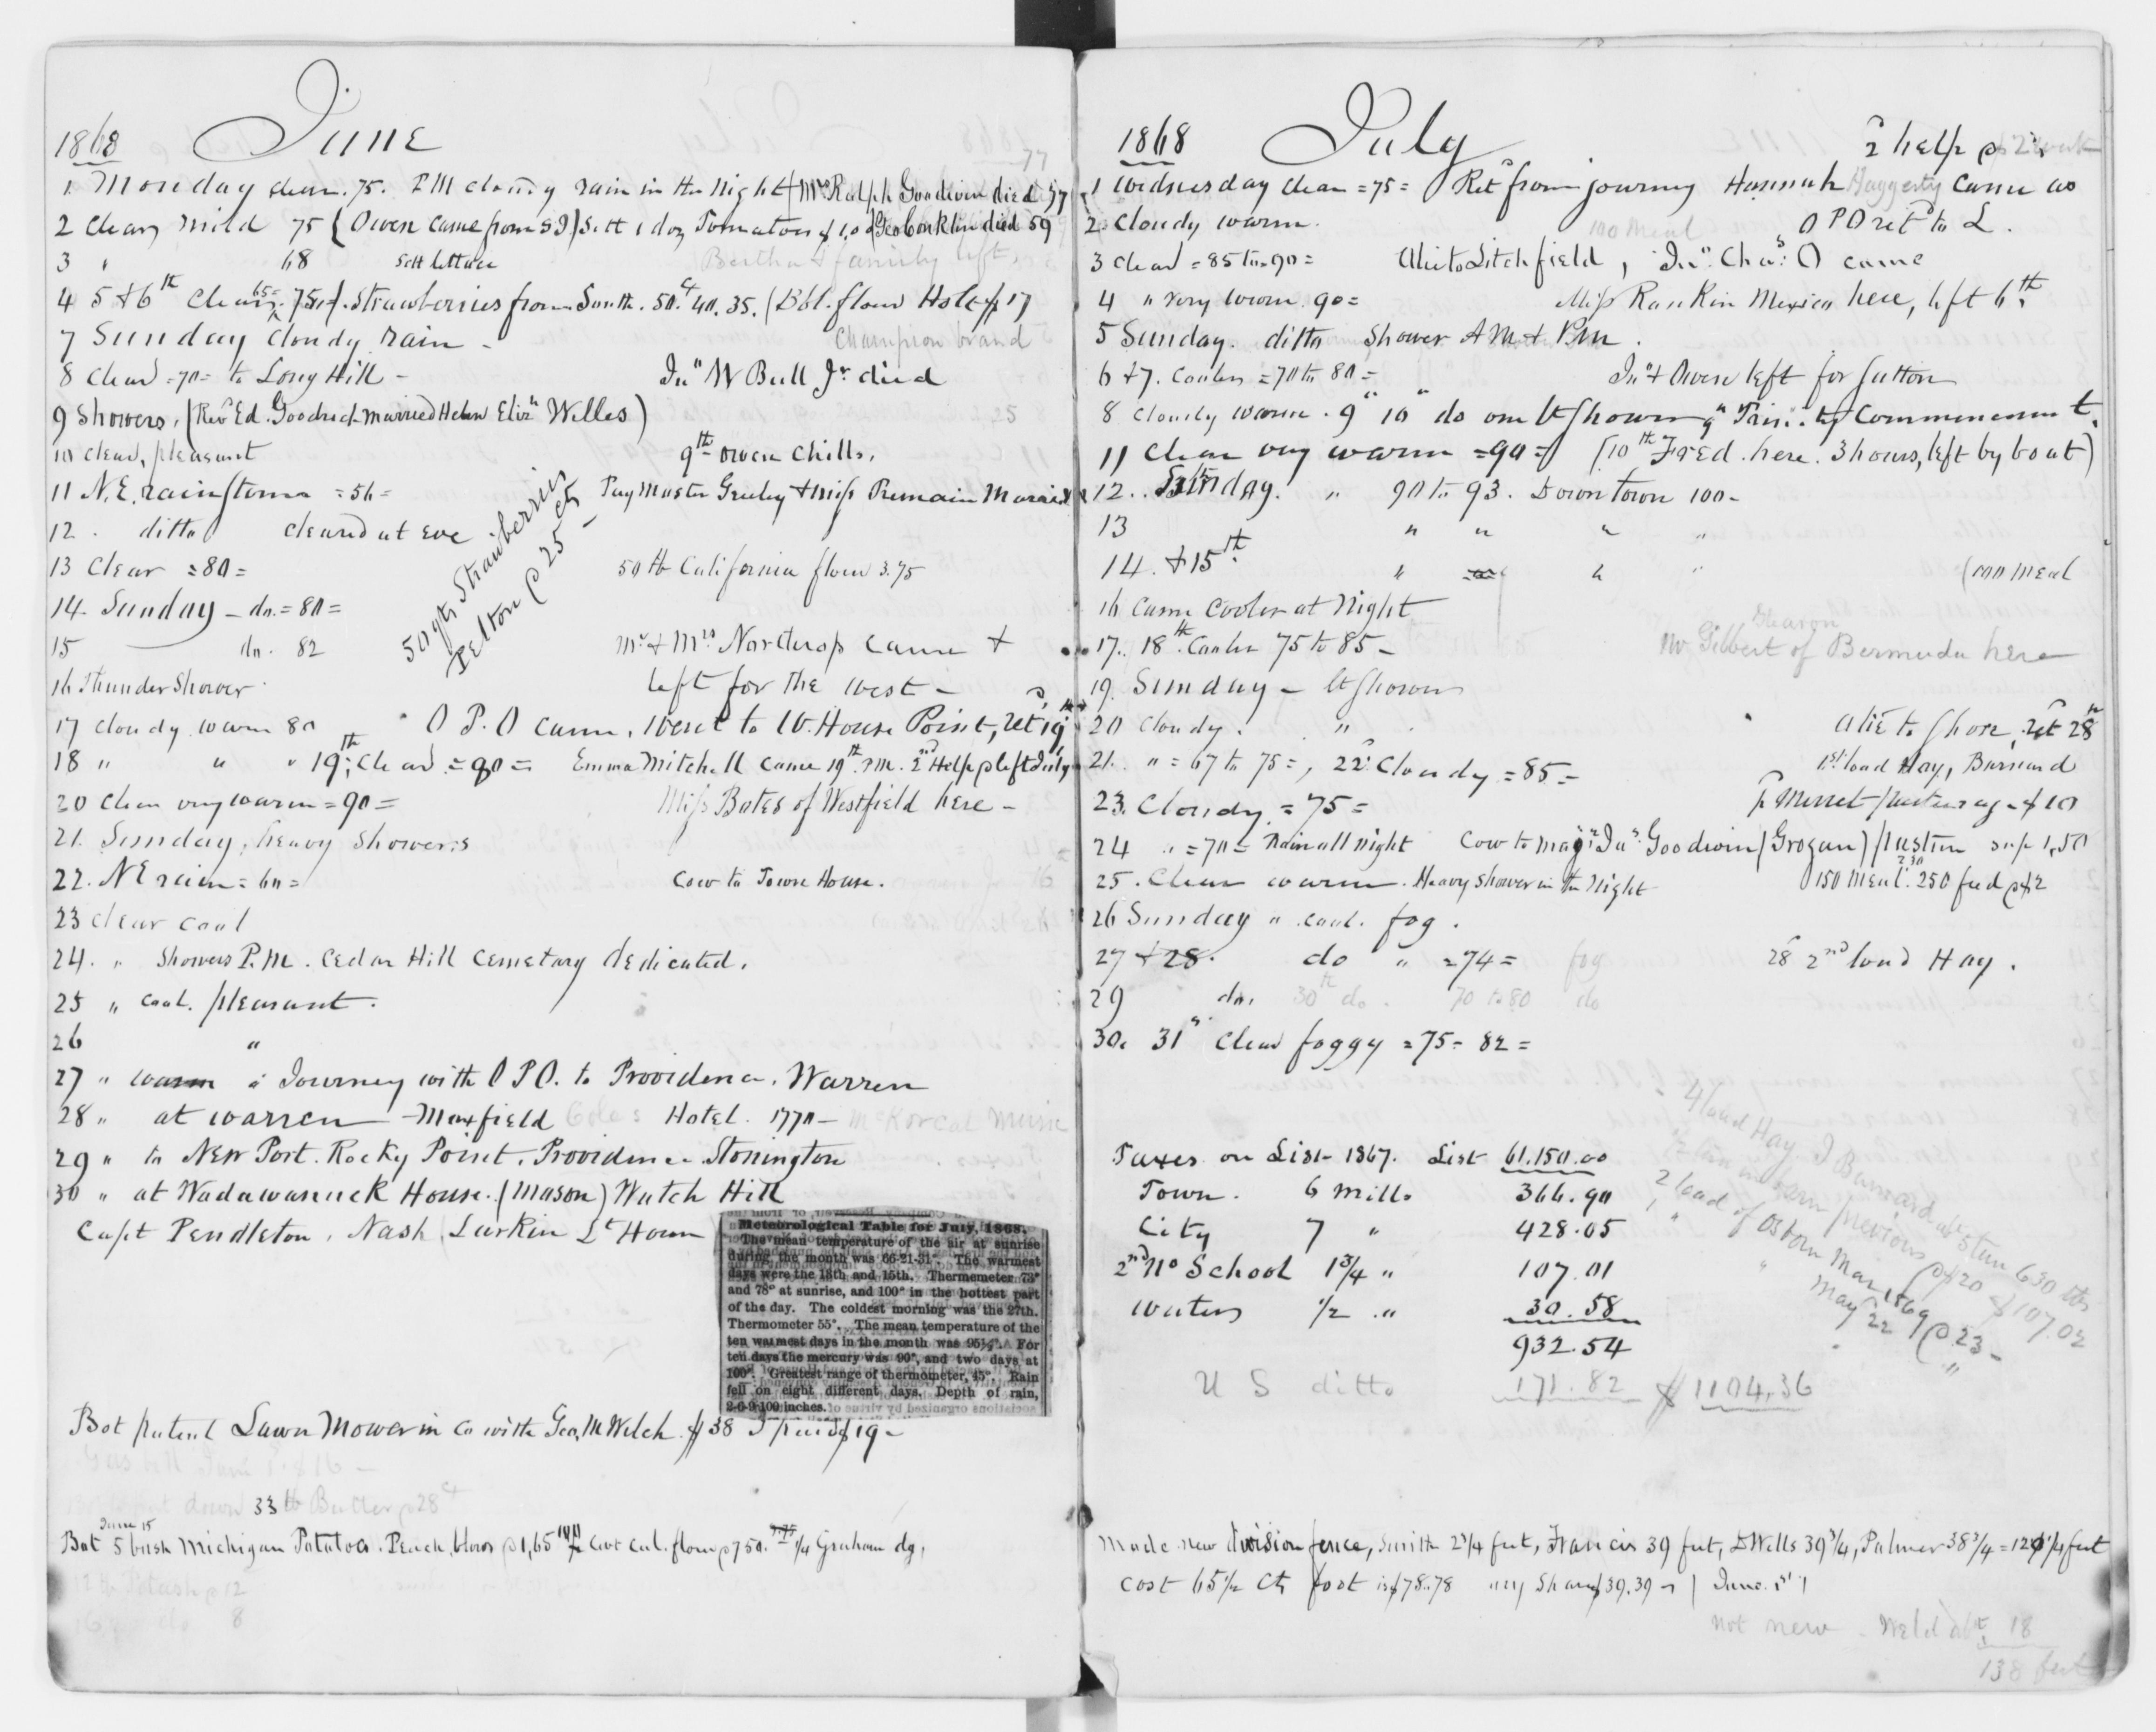 1868 June
77
1 Monday clear. 75. PM cloudy rain in the Night Mrs Ralph Goodwin died 77
2 Clear, mild 75 (Owen came from S I) Sett 1 doz Tomatoes $1,00 Geo Conklin died 59
3 " 68 Sett lettuce Bertha & family left,
4 5 & 6th Clear, 65= 75 = Strawberries from South. 50.ct 40. 35. (Bbl. flour Holt $17
7 Sunday Cloudy rain - Champion brand
8 Clear =70= to Long Hill - Jno W Bull Jr. died
9 Showers, (Rev Ed. Goodrich married Helen Elizth Welles)
10 clear, pleasant 9th Owen Chills,
11 N.E. rain storm =56= Pay Master Greeley & Miss Married
12 . ditto cleared at eve
50 qts Strawberries
Pelton @ 25 cts
13 Clear =80= 50 lb California flour 3.75
14. Sunday - do. =80=
15 do. 82 Mr & Mrs Northrop came &
16 Thunder Shower left for the west -
17 cloudy warm 80 O P. O came, went to W. House Point, ret 19th
18 " " " 19th; Clear =90= Emma Mitchell came 19th PM. 2d Help @ left July
20 Clear very warm =90= Miss Bates of Westfield here -
21. Sunday, heavy showers
22. N E rain =60= Cow to Town House.
23 clear cool
24. " Showers P.M. Cedar Hill Cemetary dedicated.
25 " cool. pleasant.
26 "
27 " warm Journey with O P O. to Providence, Warren
28 " at Warren - Maxfield Coles Hotel. 1770 -
29 " to New Port. Rocky Point, Providence Stonington
30 " at Wadawanuck House. (Mason) Watch Hill
Capt Pendleton, Nash, Larkin Lt House
Meteorological Table for July, 1868.
The mean temperature of the air at sunrise
during the month was 66-21-31°. The warmest
days were the 13th and 15th. Thermometer 73°
and 78° at sunrise, and 100° in the hottest part
of the day. The coldest morning was the 27th.
Thermometer 55°. The mean temperature of the
ten warmest days in the month was 95½°. For
ten days the mercury was 90°, and two days at
100°. Greatest range of thermometer, 45°. Rain
fell on eight different days. Depth of rain,
2-6-9-100 inches.
Bot patent Lawn Mower in Co with Geo. M Welch $38 I paid $19 -
Gas bill June
put down 33 lb Butter @ 28 ct
June 15
Bot 5 bush Michigan Potatoes. Peach blows @ 1,65 Cwt Cal. flour @ 7 50. 1/4 Graham do,
12 lb Potash @ 12
16 do 8
1868 July
2d help @ $2 week
1 Wednesday clear =75= Retd from journey Hannah Haggerty came as
2 Cloudy warm. 100 Meal O P O retd to L.
3 clear =85 to =90= Alie to Litchfield, Jno. Chas: O came
4 " very warm. 90= Miss Rankin Mexico here, left 6th
5 Sunday. ditto Shower AM & PM.
6 & 7. Cooler =70 to 80= Jno & Owen left for Sutton
8 Cloudy warm. 9" 10" do one lt shower 9" Trinity Commencement.
11 Clear very warm =90= (10th Fred. here. 3 hours, left by boat)
12.. Sunday. " 90 to 93. Down town 100 -
13 " " " "
14. & 15th. " " " (100 Meal
16 Came cooler at Night
17. 18th. Cooler 75 to 85 - Mr Gleason Gilbert of Bermuda here
19. Sunday - lt Shower
20 Cloudy. " Alie to Shore, ret 28th
21. " =67 to 75=, 22d Cloudy =85= 1st load Hay, Barnard
23. Cloudy =75= pd Merret pasturage - $10
24 " =70= Rain all night Cow to Majr Jas. Goodwin (Grogan) pasture 1,50
25. Clear warm. Heavy shower in the Night 150 Meal. 2.30 250 feed @ $2
26 Sunday " cool. fog.
27 & 28. do " =74= fog 28 2nd load Hay.
29 do. 30th do. 70 to 80 do
30. 31" Clear foggy =75= 82=
Taxes on List 1867. List 61.150.00
Town. 6 Mills 366.90
City 7 " 428.05
2nd No School 1 3/4 " 107.01
Waters 1/2 " 30.58
932.54
U S ditto 171.82 $1104,36
4 load Hay. J Barnard 630 lbs
previous @ $20 $107.02
2 load of Osborn Mar 1869 @ 23 -
1 " " May 22 "
Made new division fence, Smith 21/4 feet, Francis 39 feet, D Wells 39 3/4, Palmer 38 3/4 = 120 1/4 feet
Cost 65 1/2 cts foot is $78.78 my Share $39.39 - | June. 1st |
Not new - Weld abt 18
138 feet